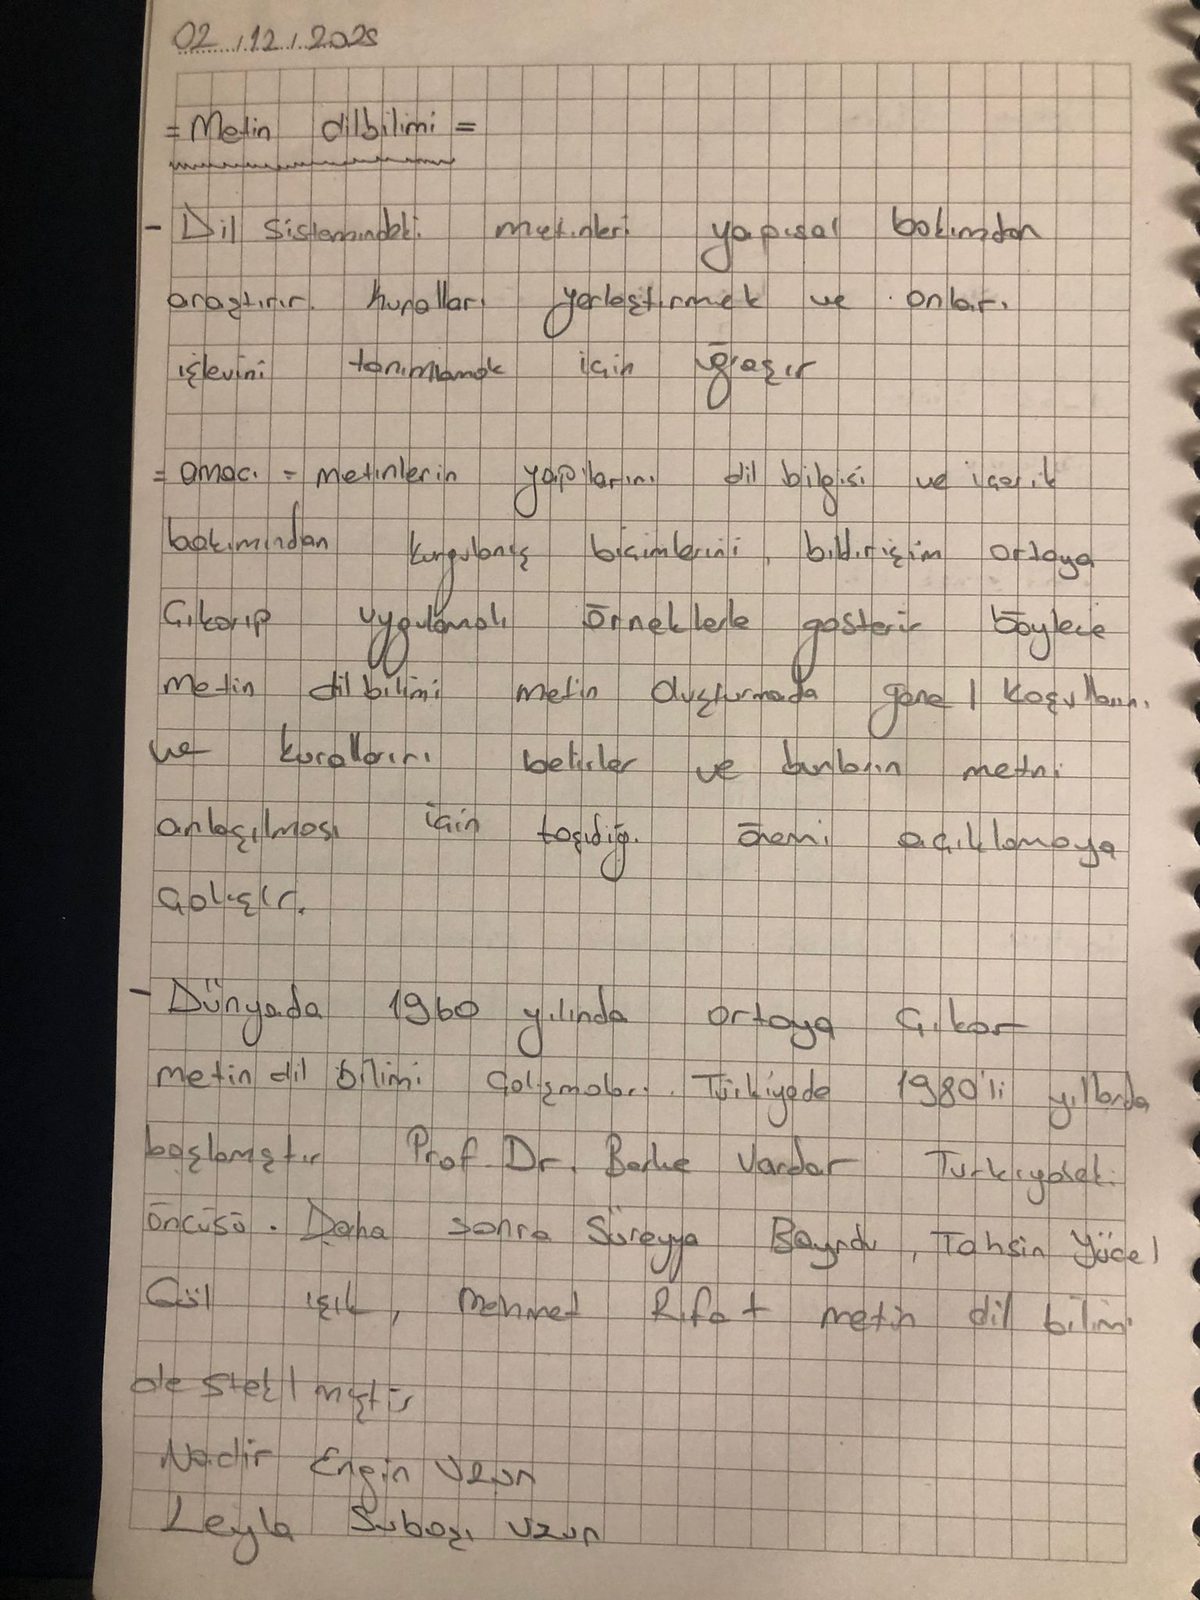 02.12.2025
= Metin dilbilimi =
- Dil Sistemindeki metinleri yapısal bakımdan
araştırır. Kuralları yerleştirmek ve onları
işlevini tanımlamak için uğraşır
= amacı = metinlerin yapılarını dil bilgisi ve içerik
bakımından kurgulanış biçimlerini, bildirişim ortaya
Çıkarıp uygulamalı örneklerle gösterir böylece
metin dil bilimi metin oluşturmada genel koşullarını
ve kurallarını belirler ve bunların metni
anlaşılması için taşıdığı önemi açıklamaya
Çalışır.
- Dünyada 1960 yılında ortaya Çıkar
metin dil bilimi Çalışmaları. Türkiyede 1980'li yıllarda
başlamıştır Prof. Dr. Berke Vardar Türkiyedeki
öncüsü. Daha sonra Süreyya Bayrdu, Tahsin Yücel
Gül ışık, Mehmet Rıfat metin dil bilimi
desteklmiştir
Nadir Engin Uzun
Leyla Subaşı Uzun